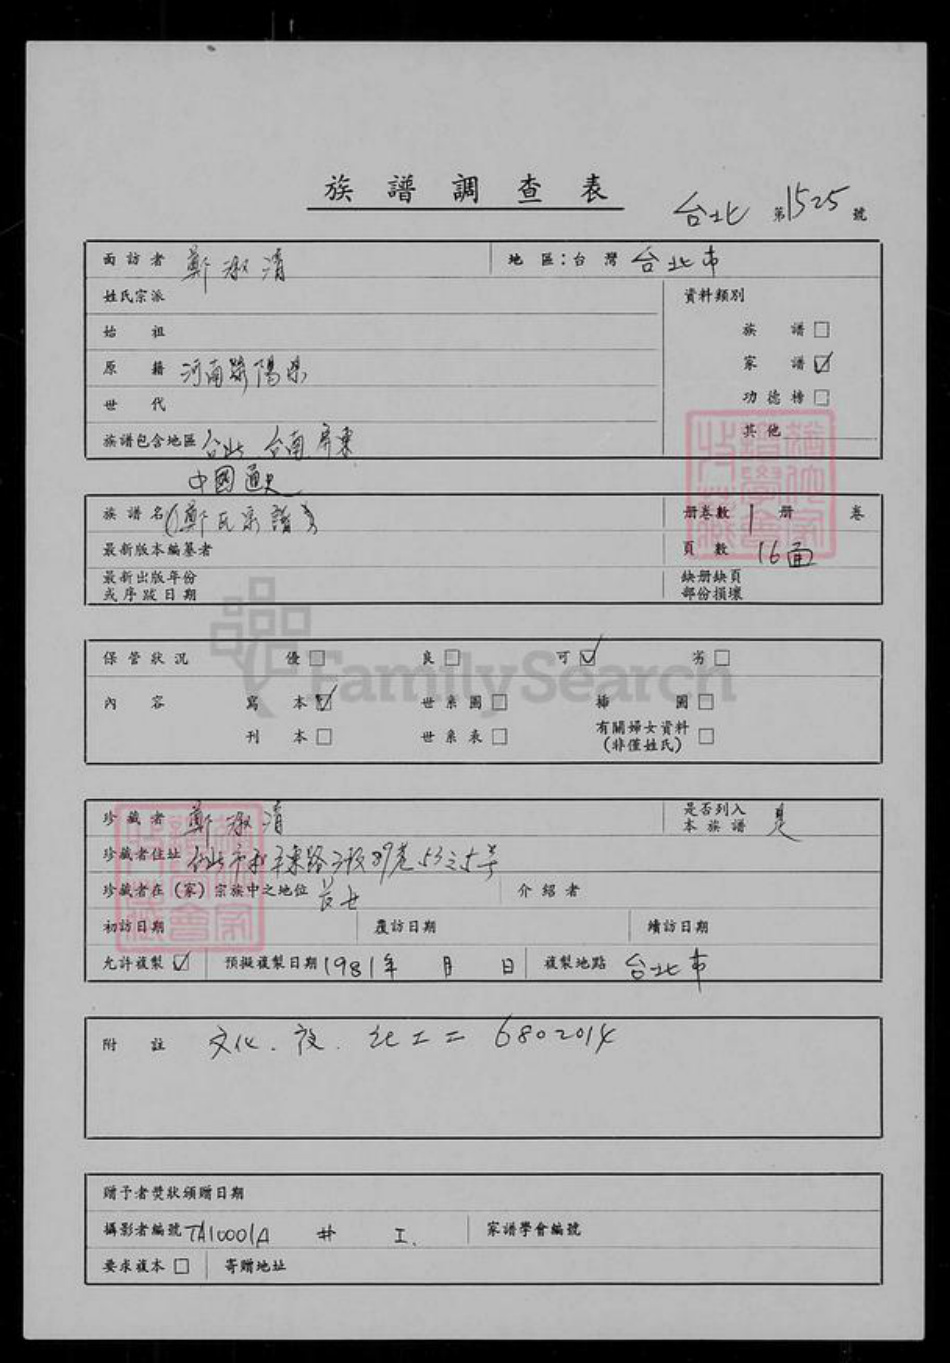 族譜調查表
台北 第1525號
面訪者 鄭淑清 地區：台灣 台北市
姓氏宗派 資料類別
始祖 族譜□
原籍 河南滎陽県 家譜☑
世代 功德榜□
族譜包含地區 台北 台南 屏東 其他
中國通史
族譜名 (鄭氏宗譜) 册卷數 1 册 卷
最新版本編纂者 頁數 16面
最新出版年份或序跋日期 缺册缺頁部份損壞
FamilySearch
保管狀況 優□ 良□ 可☑ 劣□
內容 寫本☑ 世系圖□ 插圖□
刊本□ 世系表□ 有關婦女資料(非僅姓氏)□
珍藏者 鄭淑清 是否列入本族譜 是
珍藏者住址 台北市和平東路三段89巷53之5号
珍藏者在(家)宗族中之地位 長女 介紹者
初訪日期 覆訪日期 續訪日期
允許複製☑ 預擬複製日期 1981年 月 日 複製地點 台北市
附註 文化. 夜. 6802014
贈予者獎狀頒贈日期
攝影者編號 TA10001A # I. 家譜學會編號
要求複本□ 寄贈地址